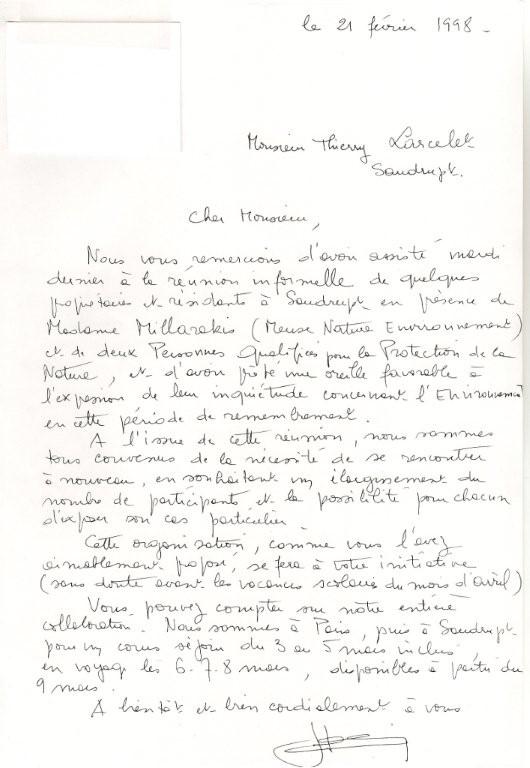 le 21 février 1998 -
Monsieur Thierry Larcelet
Saudrupt.
Cher Monsieur,
Nous vous remercions d'avoir assisté mardi
dernier à la réunion informelle de quelques
propriétaires et résidants à Saudrupt en présence de
Madame Millarakis (Meuse Nature Environnement)
et de deux Personnes Qualifiées pour la Protection de la
Nature, et d'avoir prêté une oreille favorable à
l'expression de leur inquiétude concernant l'Environnement
en cette période de remembrement.
A l'issue de cette réunion, nous sommes
tous convenus de la nécessité de se rencontrer
à nouveau, en souhaitant un élargissement du
nombre de participants et la possibilité pour chacun
d'exposer son cas particulier.
Cette organisation, comme vous l'avez
aimablement proposé, se fera à votre initiative
(sans doute avant les vacances scolaires du mois d'avril)
Vous pouvez compter sur notre entière
collaboration. Nous sommes à Paris, puis à Saudrupt
pour un court séjour du 3 au 5 mars inclus,
en voyage les 6-7-8 mars, disponibles à partir du
9 mars.
A bientôt et bien cordialement à vous